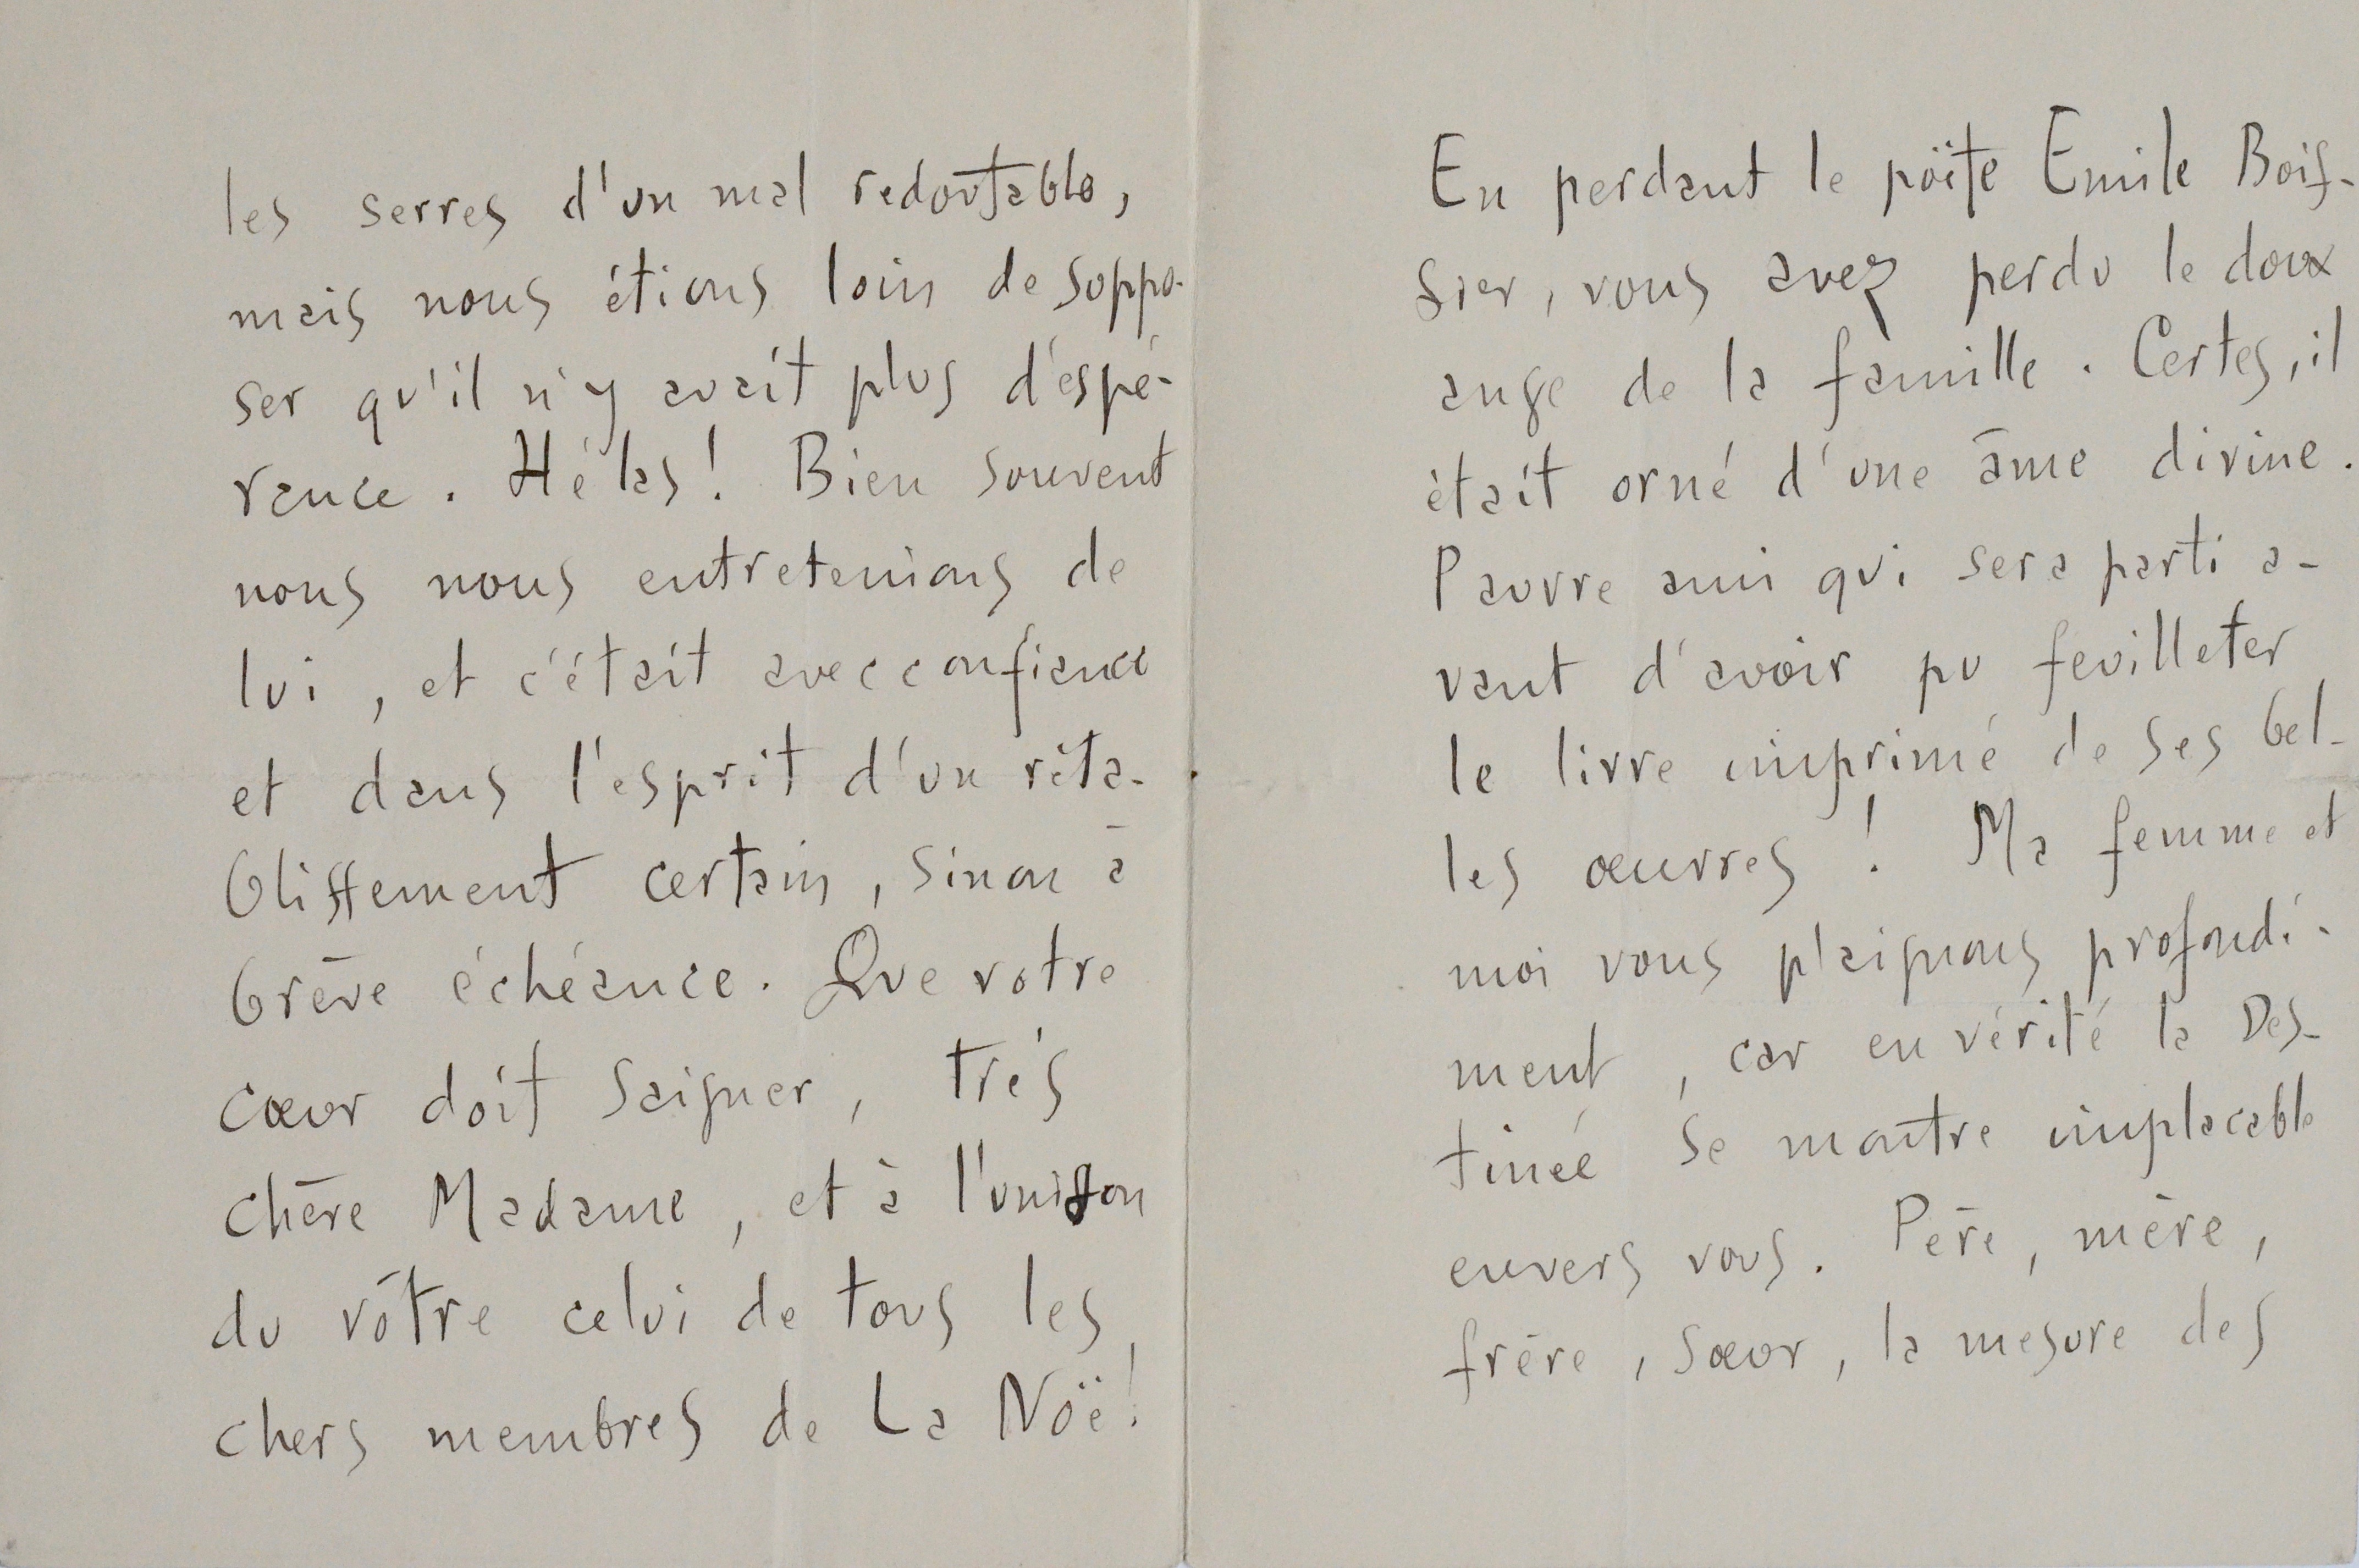 les serres d'un mal redoutable,
mais nous étions loin de suppo-
ser qu'il n'y avait plus d'espé-
rance. Hélas! Bien souvent
nous nous entretenions de
lui, et c'était avec confiance
et dans l'esprit d'un réta-
blissement certain, sinon à
brève échéance. Que votre
cœur doit saigner, très
chère Madame, et à l'unisson
du vôtre celui de tous les
chers membres de La Noë!
En perdant le poëte Emile Bois-
sier, vous avez perdu le doux
ange de la famille. Certes, il
était orné d'une âme divine.
Pauvre ami qui sera parti a-
vant d'avoir pu feuilleter
le livre imprimé de ses bel-
les œuvres! Ma femme et
moi vous plaignons profondé-
ment, car en vérité la Des-
tinée se montre implacable
envers vous. Père, mère,
frère, sœur, la mesure des